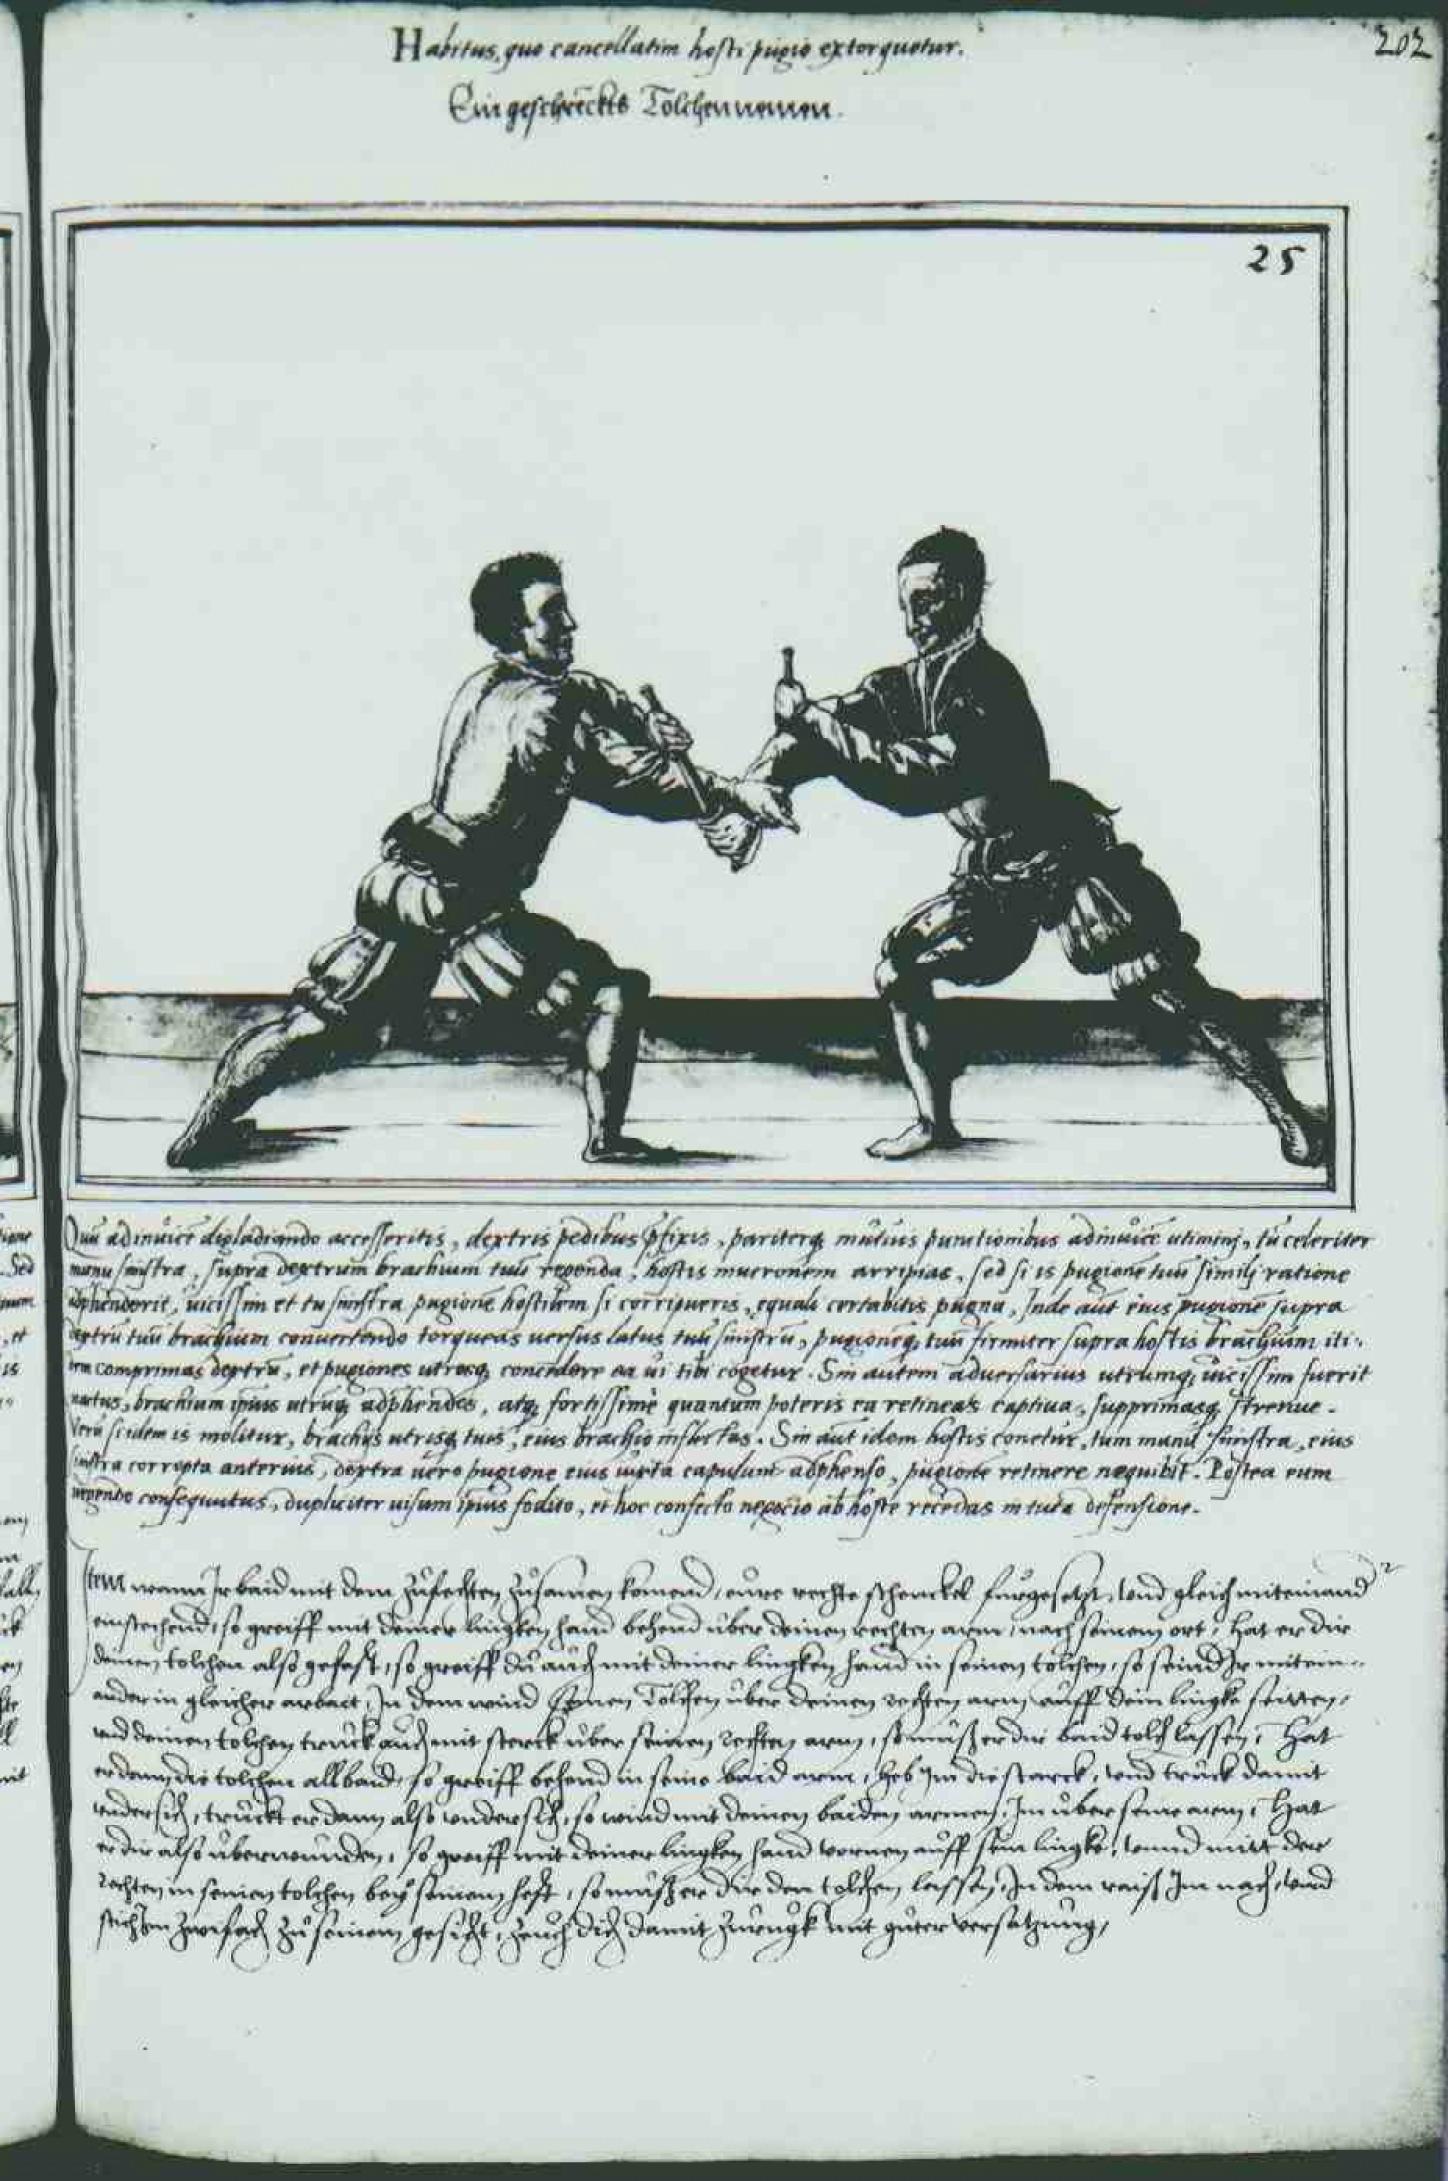 202
Habitus, quo cancellatim hosti pugio extorquetur.
Ein geschrenckts Tolchennemen.
25
Quũ adinuicẽ digladiando accesseritis, dextris pedibus p̃fixis, pariterq; mutuis punctionibus adinuicẽ utiminj, tũ celeriter
manu sinistra, supra dextrum brachium tuũ reponda, hostis mucronem arripias, sed si is pugionẽ tuũ similj ratione
adphenderit, uicissim et tu sinistra pugionẽ hostilem si corripueris, equali certabitis pugna, Inde aũt eius pugionẽ supra
dextrũ tuũ brachium conuertendo torqueas uersus latus tuũ sinistrũ, pugionẽq; tuũ firmiter supra hostis brachium iti-
dem comprimas dextrũ, et pugiones utrosq; concedere ea ui tibi cogetur. Sin autem aduersarius utrumq; uicissim fuerit
nactus, brachium ipsius utrũq; adphendes, atq; fortissimè quantum poteris ea retineas captiua, supprimasq; strenue.
Verũ si idem is molitur, brachijs utrisq; tuis, eius brachio inflectas. Sin aũt idem hostis conetur, tum manu sinistra, eius
sinistra correpta anterius, dextra uero pugione eius iuxta capulum adphenso, pugionẽ retinere nequibit. Postea eum
urgendo consequutus, dupliciter uisum ipsius fodito, et hoc confecto negocio ab hoste recedas in tuta defensione.
Item wann Ir baid mit dem zůfechten zůsamen komend, eure rechte schenckel fürgesetzt, vnd gleich miteinand
einstechend, so greiff mit deiner lingken hand behend über deinen rechten arm, nach seinem ort, Hat er dir
deinen tolchen also gefast, so greiff dů aůch mit deiner lingken hand in seinen tolchen, so seind Ir mitein-
ander in gleicher arbait, In dem wind Jm seinen Tolchen über deinen rechten arm aůff dein lingke seitten,
vnd deinen tolchen trůck aůch mit sterck über seinen rechten arm, so můß er dir baid tolch lassen, Hat
er dann die tolchen all baid, so greiff behend in seine baid arm, heb Im die starck, vnd trůck damit
vndersich, trůckt er dann also vndersich, so wind mit deinen baiden armen, Im über seine arm, Hat
er dir also überwůnden, so greiff mit deiner lingken hand vornen aůff sein lingke, vnnd mitt der
rechten in seinen tolchen bey seinem hefft, so můß er dir den tolchen lassen, In dem raiß Im nach, vnd
stich Im zwifach zů seinem gesicht, zeuch dich damit zůrůgk mit gůter versatzůng,